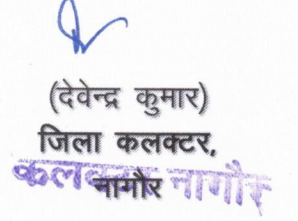 (देवेन्द्र कुमार)
जिला कलक्टर,
नागौर
कलक्टर नागौर